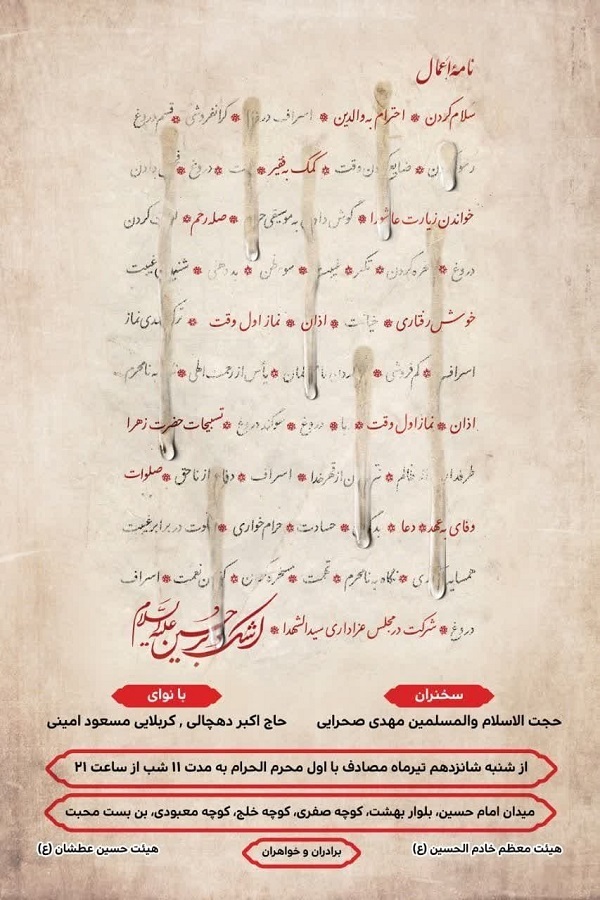 نامهٔ اعمال
سلام کردن * احترام به والدین * اسراف در * گرانفروشی * قسم دروغ
ضایع کردن وقت * کمک به فقیر * دروغ *
خواندن زیارت عاشورا * گوش دادن به موسیقی حرام * صله رحم * کردن
دروغ * مسخره کردن * تکبر * غیبت * سوء ظن * بد دهنی * شنیدن غیبت
خوش رفتاری * خیانت * اذان * نماز اول وقت * نماز
اسراف * کم فروشی * یأس از رحمت الهی * به نامحرم
اذان * نماز اول وقت * ریا * دروغ * سوگند دروغ * تسبیحات حضرت زهرا
ظالم * نترسیدن از قهر خدا * اسراف * دفاع از ناحق * صلوات
وفای به عهد * دعا * حسادت * حرام خواری * سکوت در برابر غیبت
همسایه آزاری * نگاه به نامحرم * تهمت * مسخره کردن * کفران نعمت * اسراف
دروغ * شرکت در مجلس عزاداری سیدالشهدا * اشک بر حسین علیه السلام
سخنران
حجت الاسلام والمسلمین مهدی صحرایی
با نوای
حاج اکبر دهچالی , کربلایی مسعود امینی
از شنبه شانزدهم تیرماه مصادف با اول محرم الحرام به مدت ۱۱ شب از ساعت ۲۱
میدان امام حسین، بلوار بهشت، کوچه صفری، کوچه خلج، کوچه معبودی، بن بست محبت
هیئت معظم خادم الحسین (ع)
برادران و خواهران
هیئت حسین عطشان (ع)